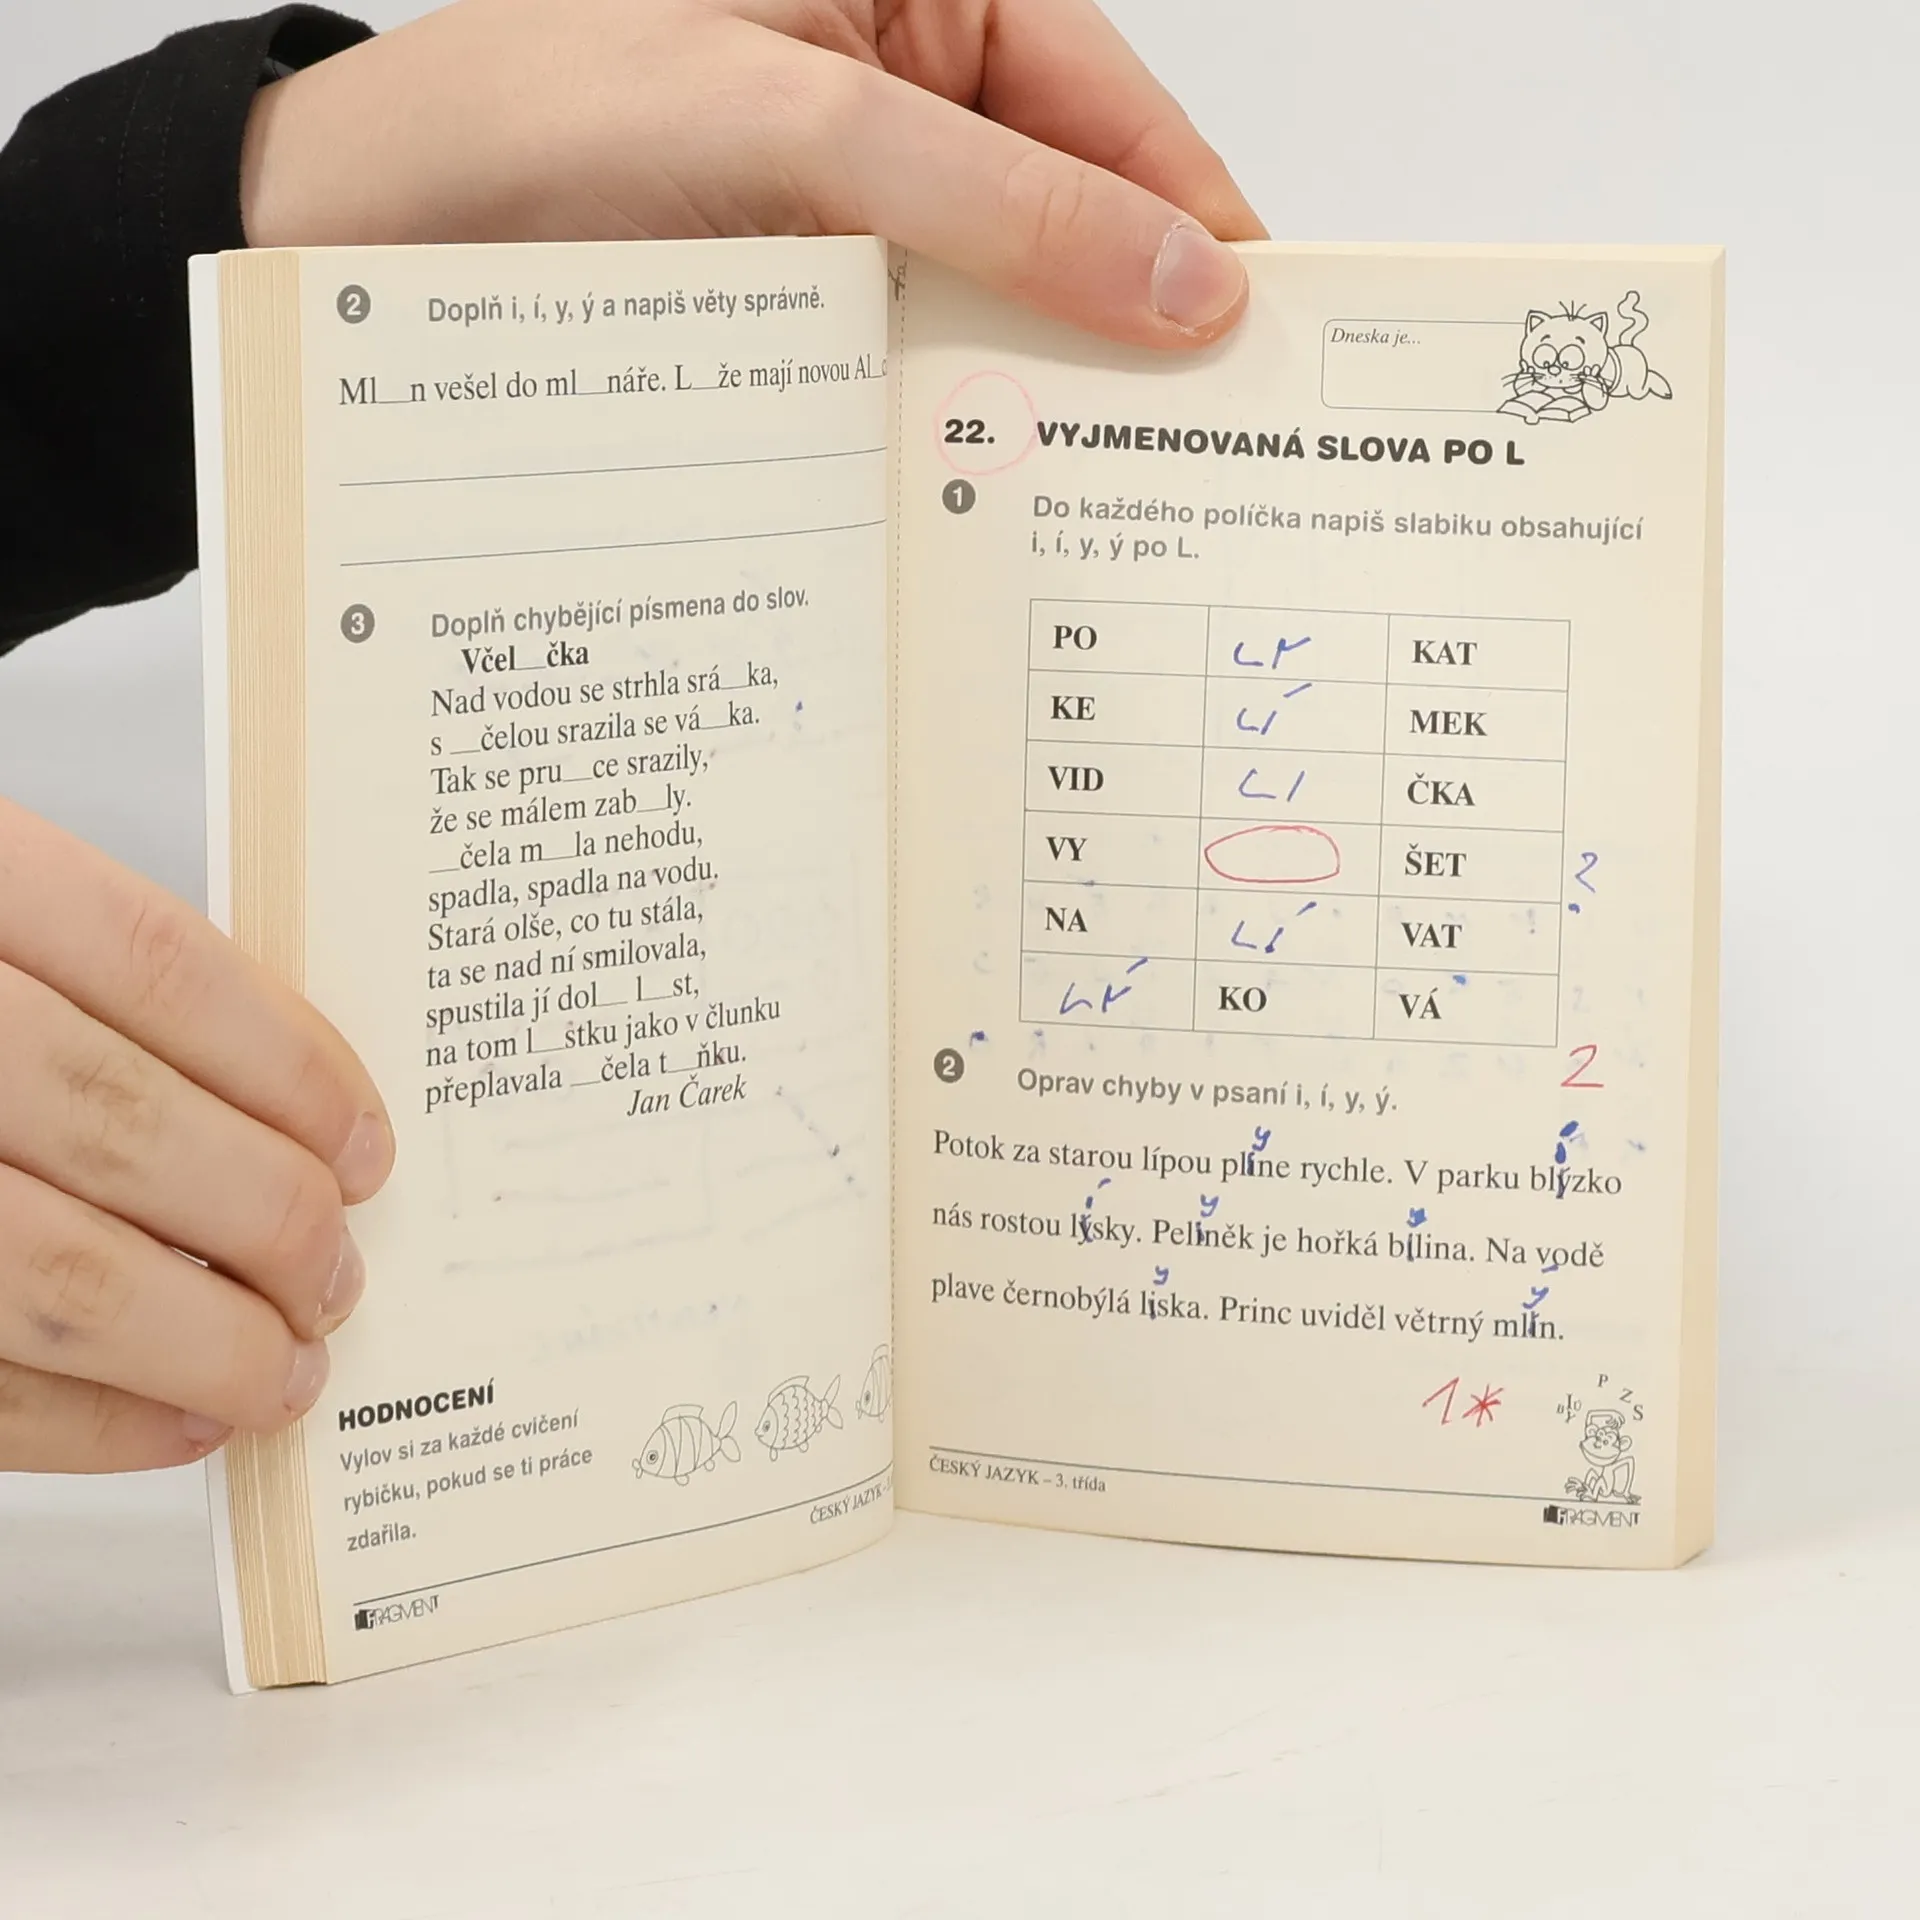 2 Doplň i, í, y, ý a napiš věty správně.
Ml__n vešel do ml__náře. L__že mají novou Al_
3 Doplň chybějící písmena do slov.
Včel__čka
Nad vodou se strhla srá__ka,
s __čelou srazila se vá__ka.
Tak se pru__ce srazily,
že se málem zab__ly.
__čela m__la nehodu,
spadla, spadla na vodu.
Stará olše, co tu stála,
ta se nad ní smilovala,
spustila jí dol__ l__st,
na tom l__stku jako v člunku
přeplavala __čela t__ňku.
Jan Čarek
HODNOCENÍ
Vylov si za každé cvičení
rybičku, pokud se ti práce
zdařila.
ČESKÝ JAZYK –
FRAGMENT
Dneska je...
22. VYJMENOVANÁ SLOVA PO L
1 Do každého políčka napiš slabiku obsahující
i, í, y, ý po L.
PO LY KAT
KE LÍ MEK
VID LI ČKA
VY ŠET ?
NA LÍ VAT
LÝ KO VÁ
2
2 Oprav chyby v psaní i, í, y, ý.
Potok za starou lípou plíne rychle. V parku blýzko
nás rostou lýsky. Peliněk je hořká bilina. Na vodě
plave černobýlá liska. Princ uviděl větrný mlín.
1*
P Z S
ČESKÝ JAZYK – 3. třída
FRAGMENT